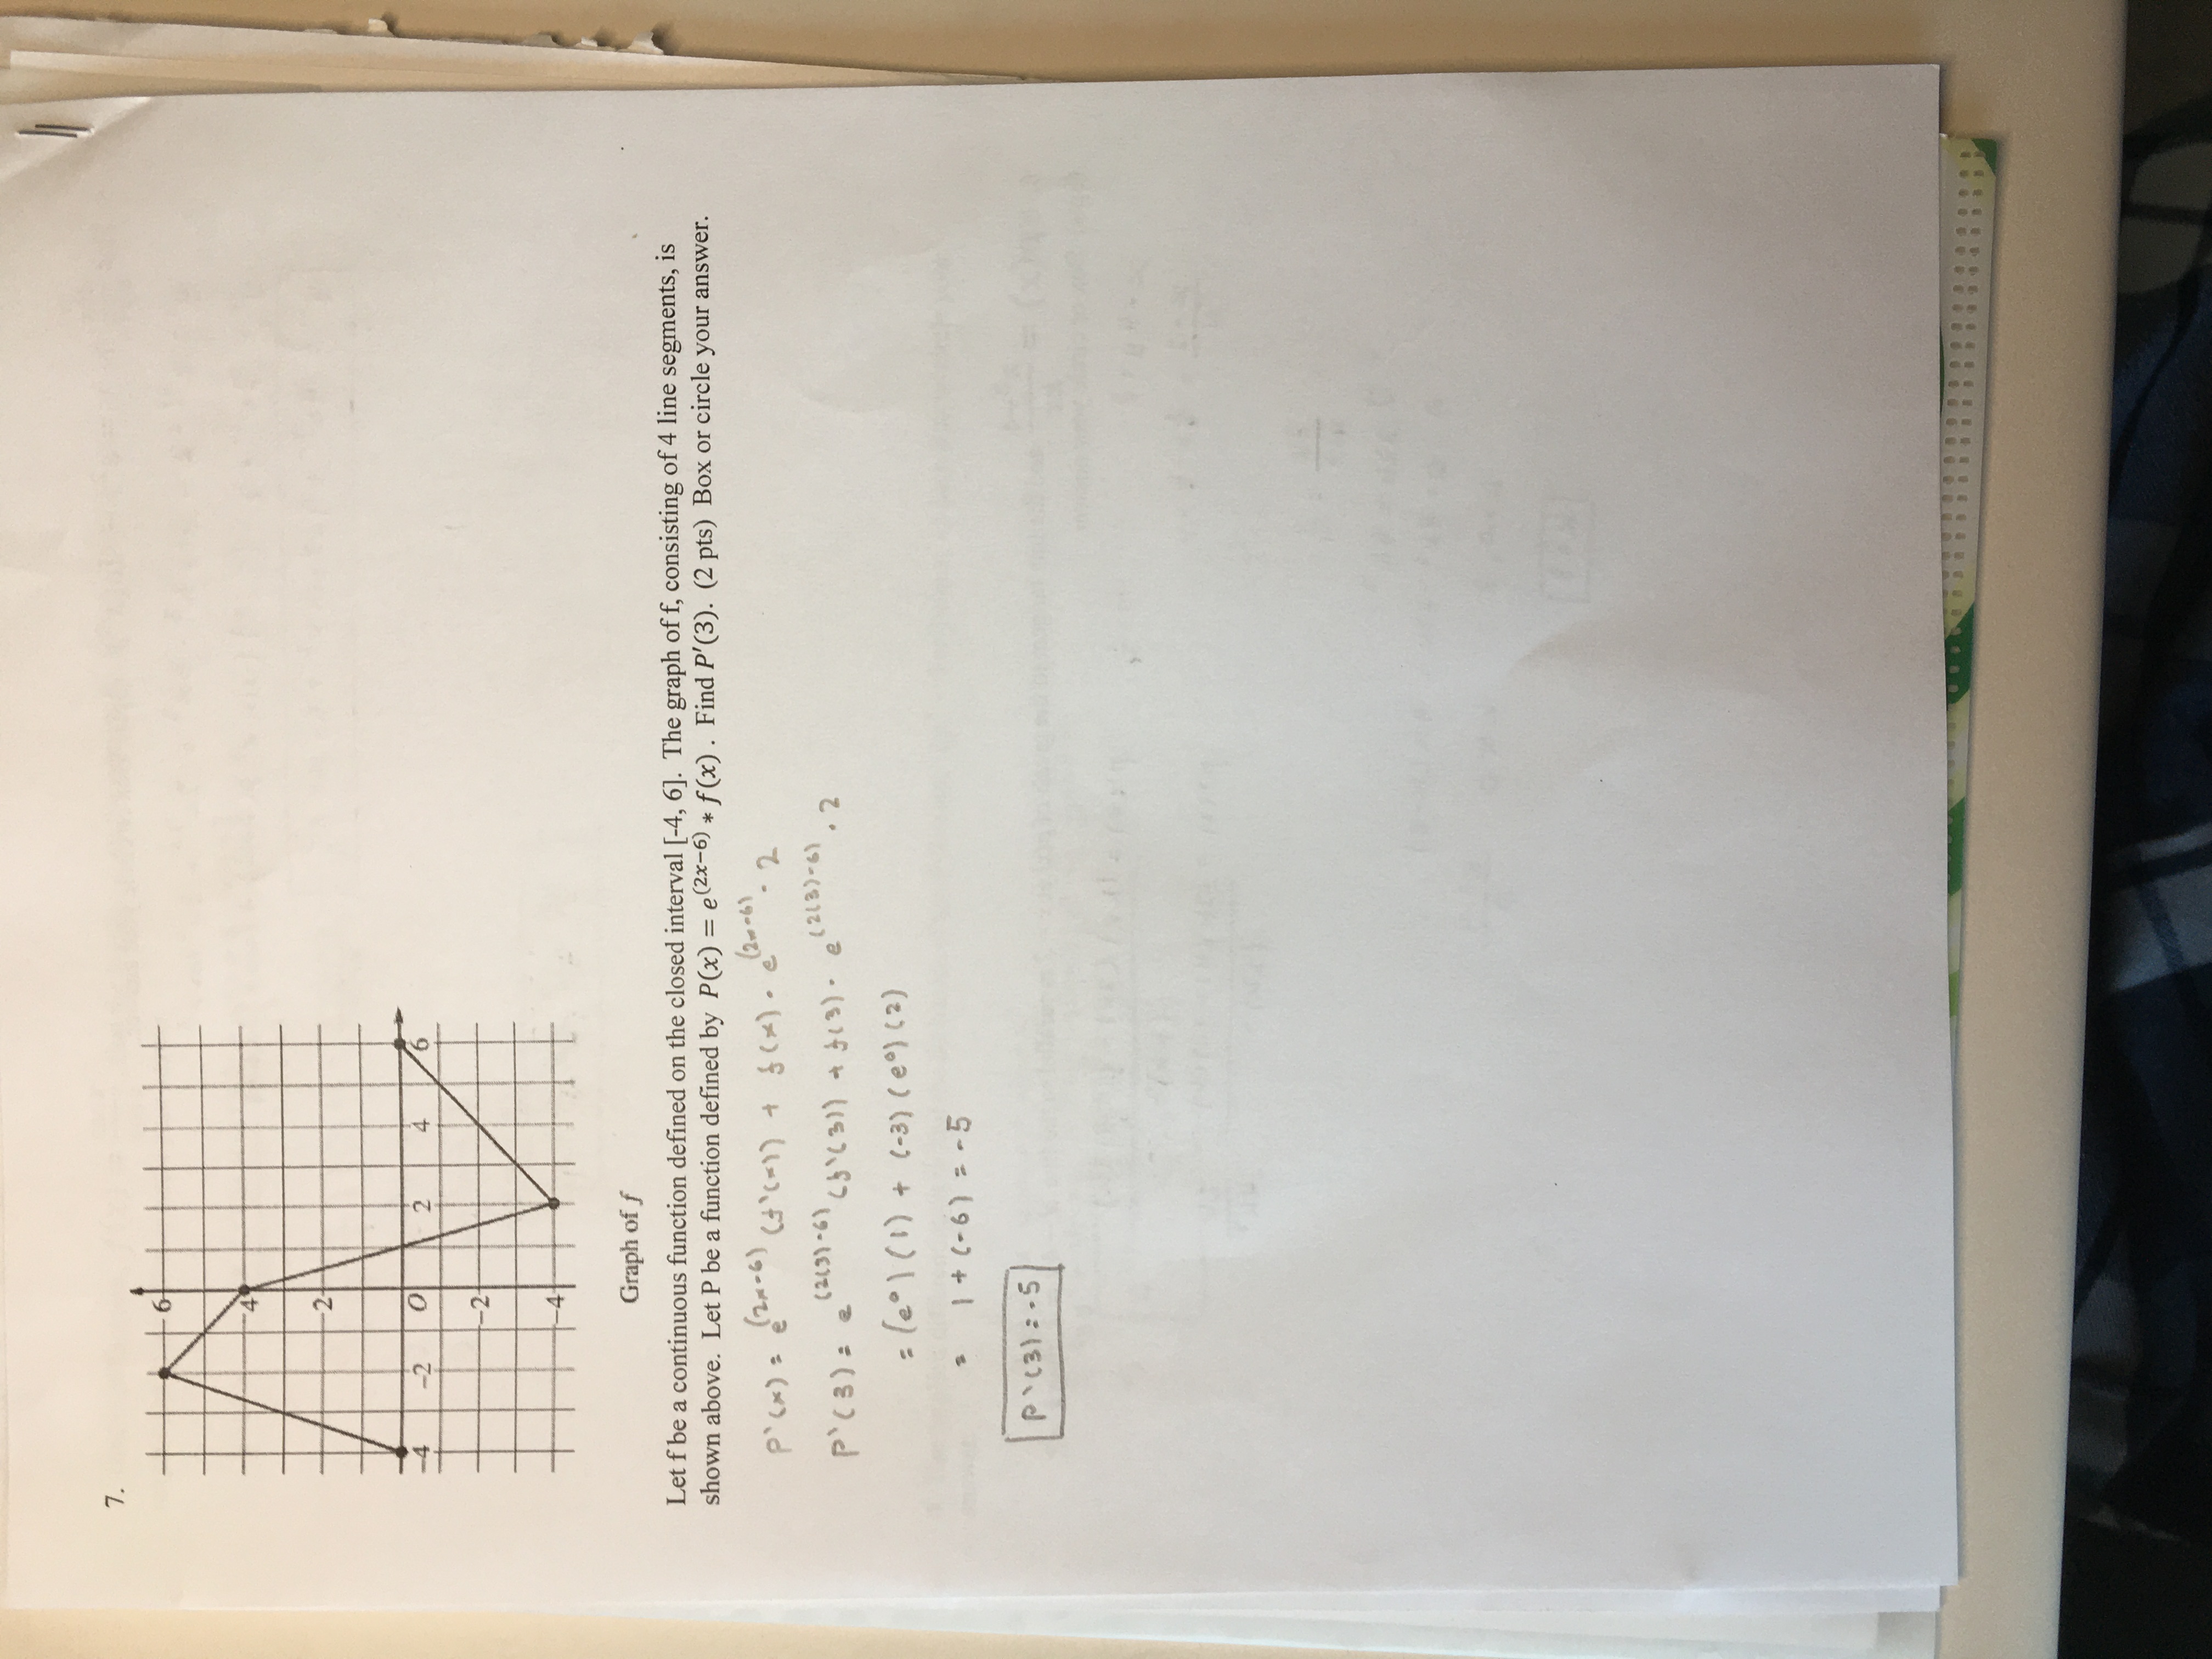 7.
6
4
2
-4 -2 O 2 4 6
-2
-4
Graph of f
Let f be a continuous function defined on the closed interval [-4, 6]. The graph of f, consisting of 4 line segments, is
shown above. Let P be a function defined by P(x) = e^(2x−6) * f(x) . Find P′(3). (2 pts) Box or circle your answer.
P'(x) = e^(2x-6) (f'(x)) + f(x) · e^(2x-6) · 2
P'(3) = e^(2(3)-6) (f'(3)) + f(3) · e^(2(3)-6) · 2
= (e⁰) (1) + (-3) (e⁰) (2)
= 1 + (-6) = -5
P'(3) = -5